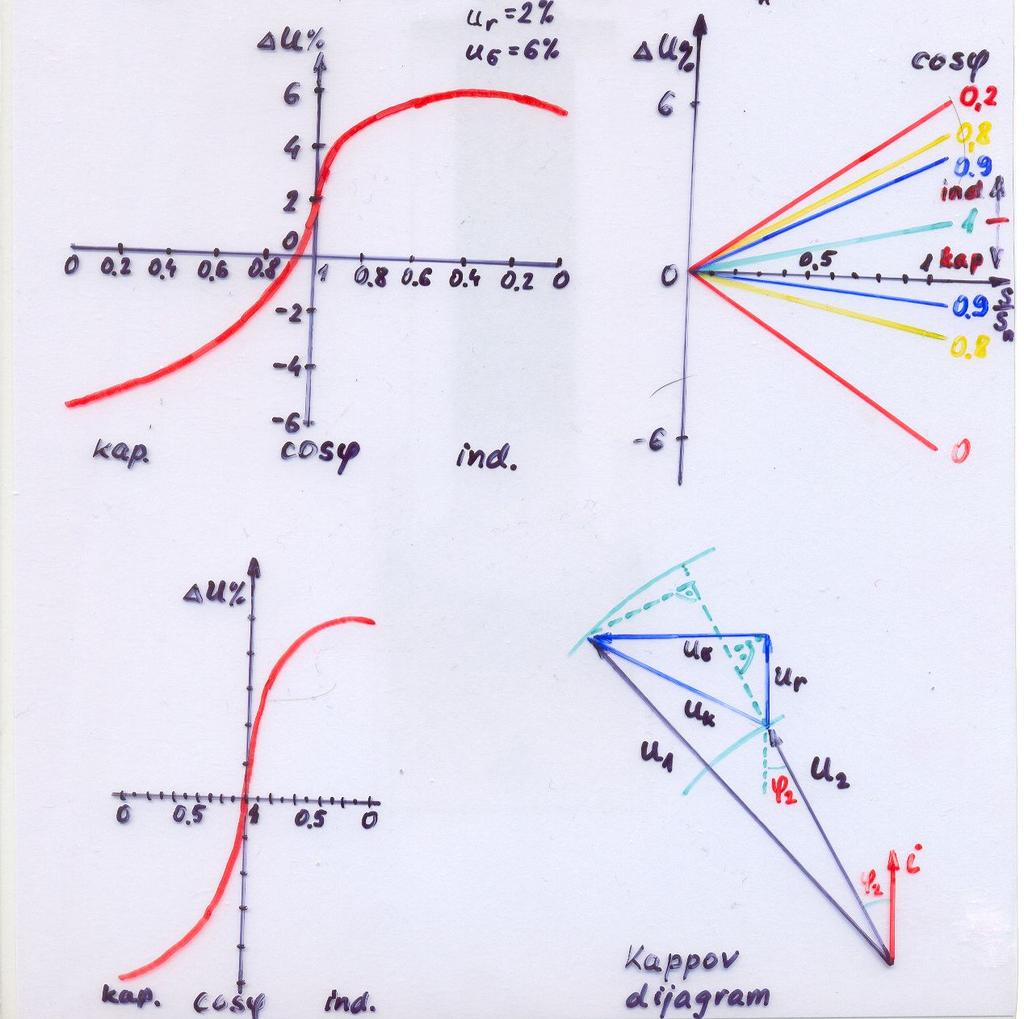 u r = 2%
u б = 6%
ΔU%
6
4
2
0
-2
-4
-6
0 0.2 0.4 0.6 0.8 1 0.8 0.6 0.4 0.2 0
kap. cosφ ind.
ΔU%
cosφ
6
0,2
0,8
0.9
ind
1
0 0.5 1
kap
S/Sn
0.9
0.8
-6
0
ΔU%
0 0.5 1 0.5 0
kap. cosφ ind.
uб
ur
uk
u1
u2
φ2
i
φ2
Kappov
dijagram